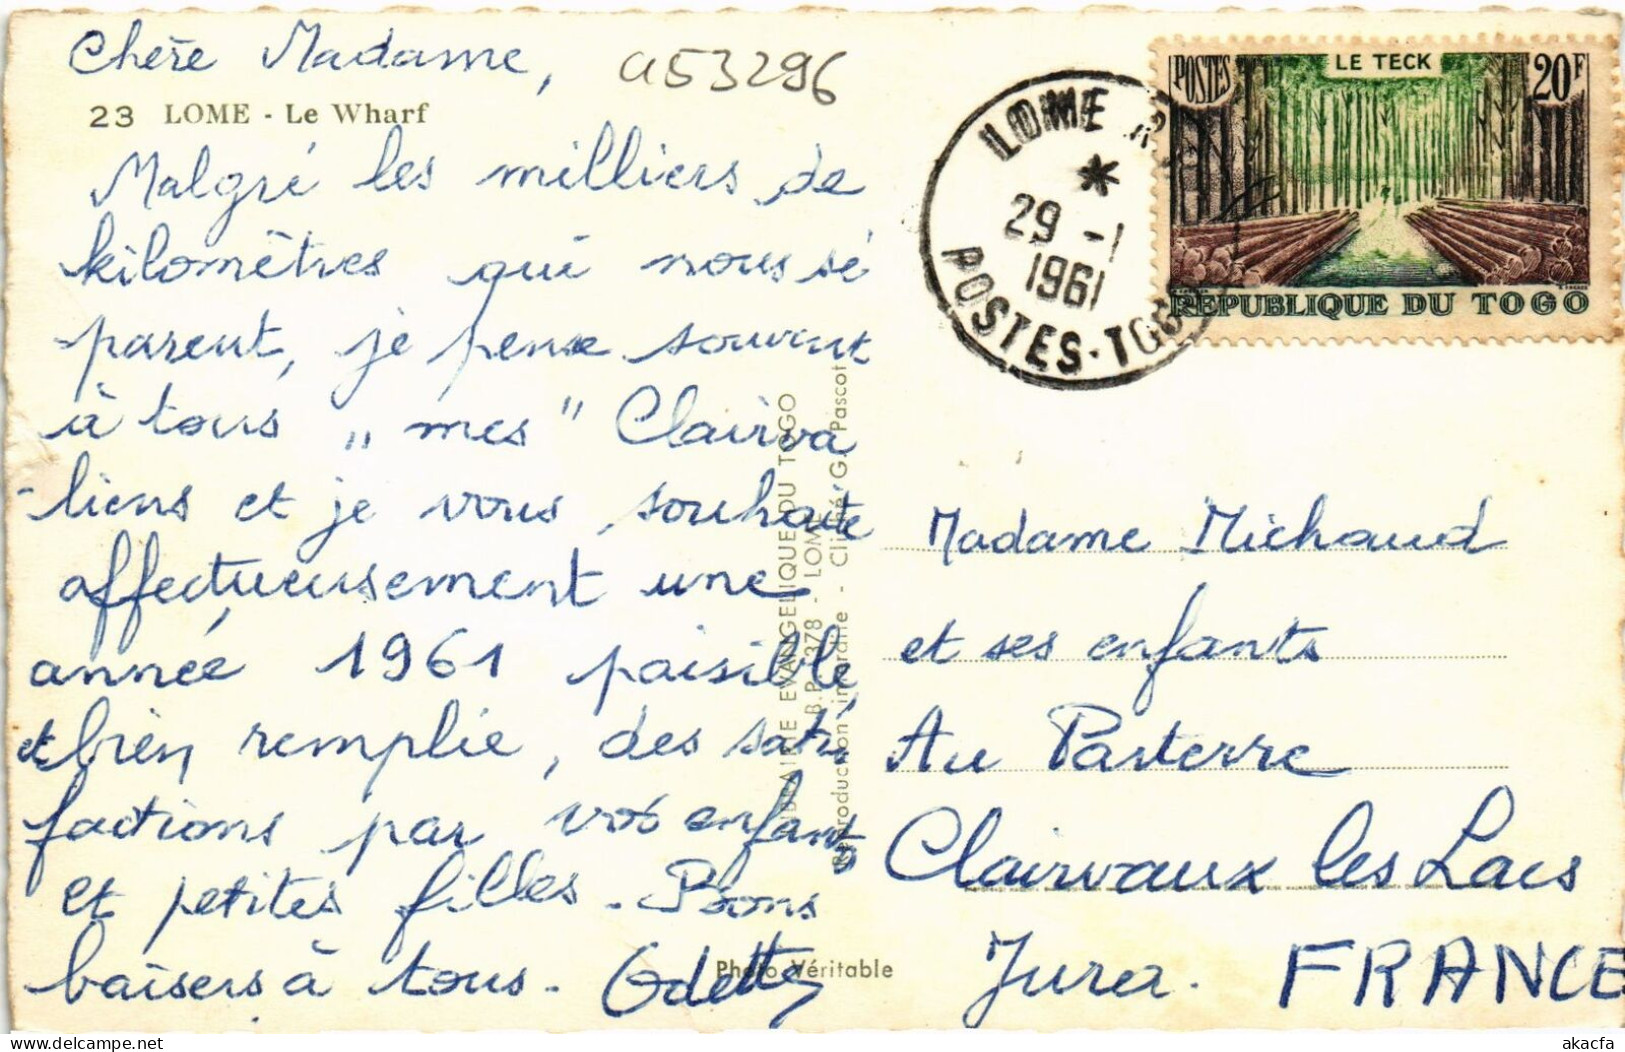 Chère Madame,
a53296
23 LOME - Le Wharf
Malgré les milliers de
kilomètres qui nous sé
parent, je pense souvent
à tous „mes" Clairva
-liens et je vous souhaite
affectueusement une
année 1961 paisible
et bien remplie, des satis
factions par vos enfants
et petites filles. Bons
baisers à tous. Odette
LIBRAIRIE EVANGELIQUE DU TOGO
B.P. 378 - LOME
Reproduction interdite - Cliché G. Pascot
Photo Véritable
LOME
*
29 -1
1961
POSTES - TOGO
POSTES
LE TECK
20F
REPUBLIQUE DU TOGO
Madame Michaud
et ses enfants
Au Parterre
Clairvaux les Lacs
Jura. FRANCE
delcampe.net
akacfa